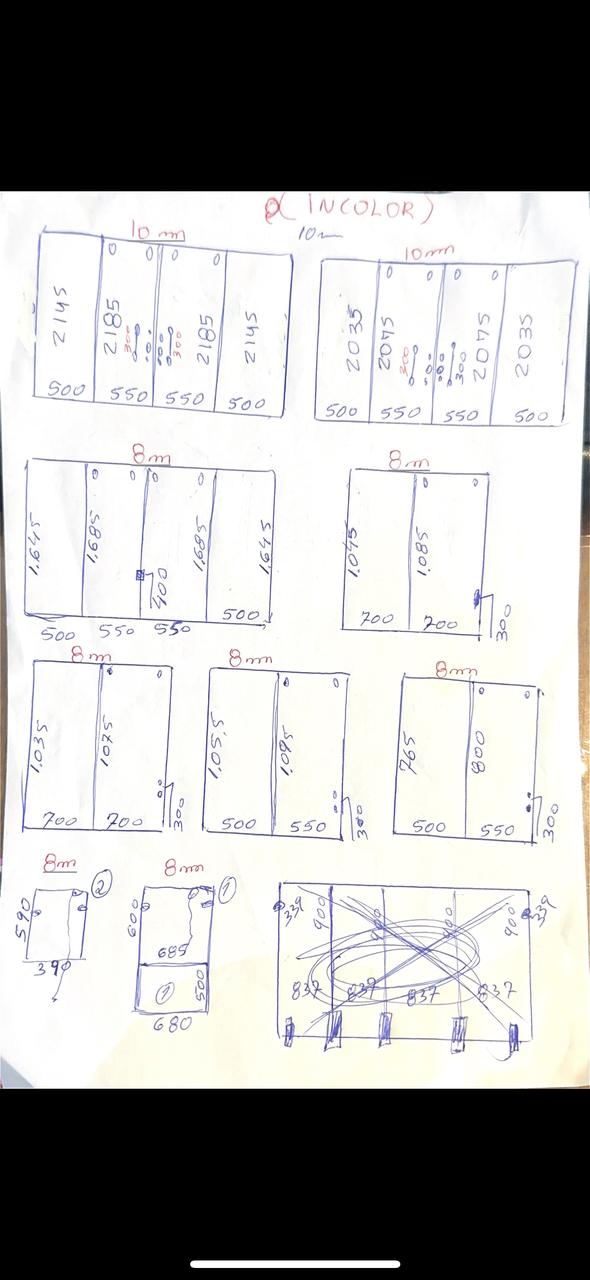 (INCOLOR)
10m
10m
10m
2145
2185
300
300
2185
2145
500
550
550
500
2035
2075
300
300
2075
2035
500
550
550
500
8m
8m
1.645
1.685
400
1.685
1.645
500
500
550
550
1.045
1.085
700
700
300
8m
8m
8m
1.035
1.075
700
700
300
1.055
1.095
500
550
300
765
800
500
550
300
8m
8m
2
590
390
1
600
685
1
500
680
339
900
900
900
900
339
837
837
837
837